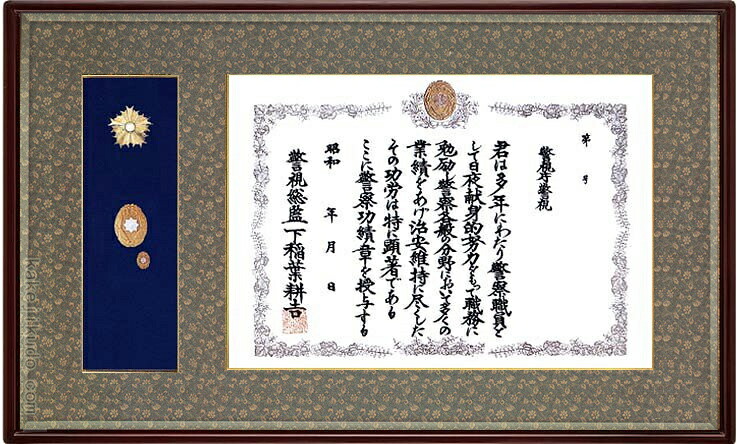 第　号
警視庁警視
君は多年にわたり警察職員と
して日夜献身的努力をもって職務に
勉励し警察各般の分野において多くの
業績をあげ治安維持に尽くした
その功労は特に顕著である
ここに警察功績章を授与する
昭和　年　月　日
警視総監　下稲葉耕吉